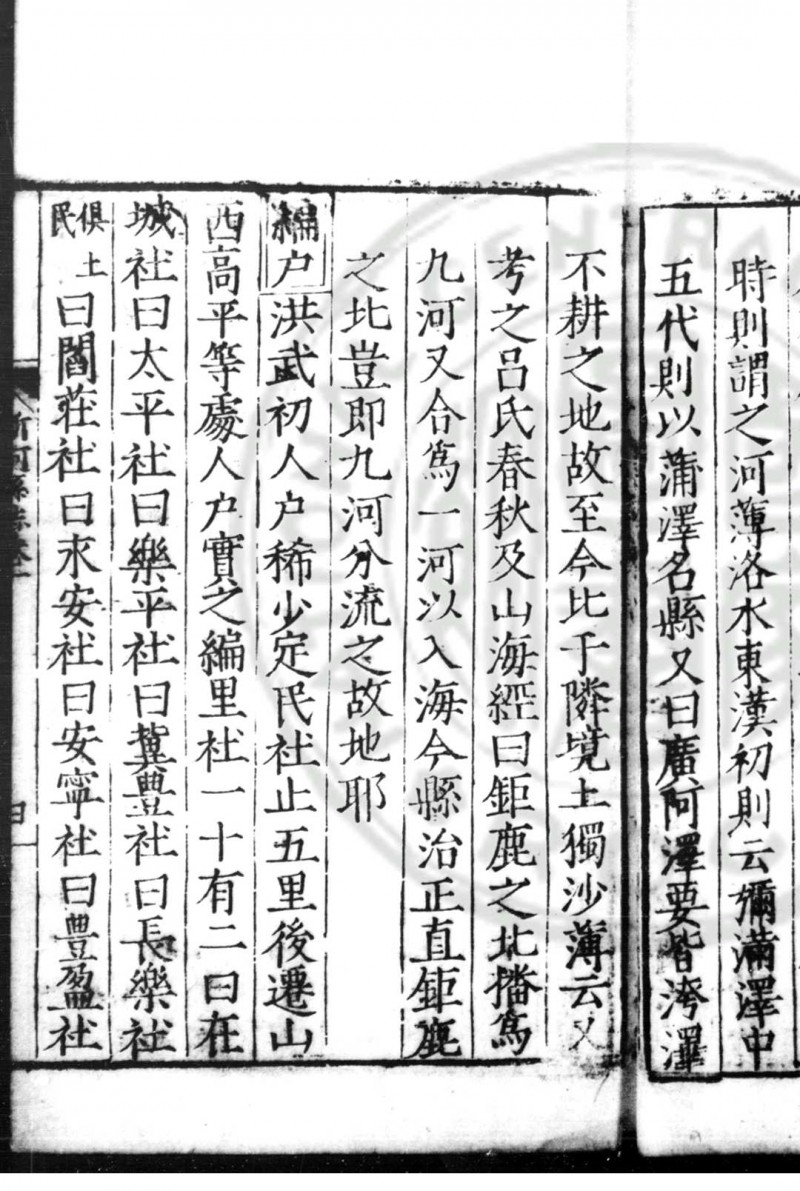 時則謂之河薄洛水東漢初則云彌滿澤中
五代則以蒲澤名縣又曰廣阿澤要皆洿澤
不耕之地故至今比于隣境土獨沙薄云又
考之呂氏春秋及山海經曰鉅鹿之北播爲
九河又合爲一河以入海今縣治正直鉅鹿
之北豈即九河分流之故地耶
編户洪武初人户稀少定民社止五里後遷山
西高平等處人户實之編里社一十有二曰在
城社曰太平社曰樂平社曰冀豊社曰長樂社
俱土
民
曰閻莊社曰永安社曰安寧社曰豊盈社
新河縣志卷一